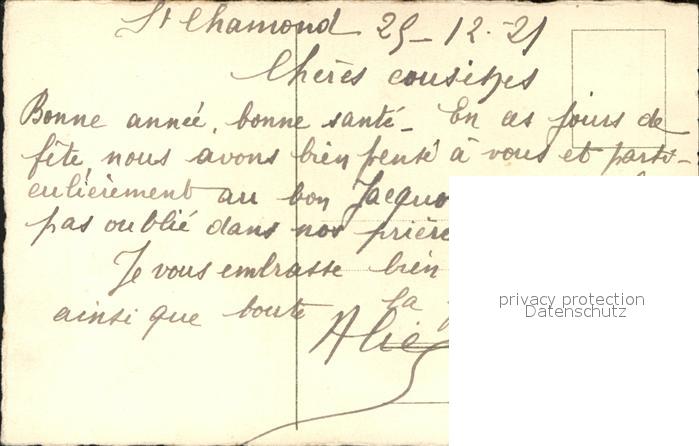 St Chamond 29-12-21
Chères cousines
Bonne année, bonne santé - En ces jours de
fête nous avons bien pensé à vous et parti-
culièrement au bon
pas oublié dans nos
Je vous embrasse bien
ainsi que toute la
privacy protection
Datenschutz